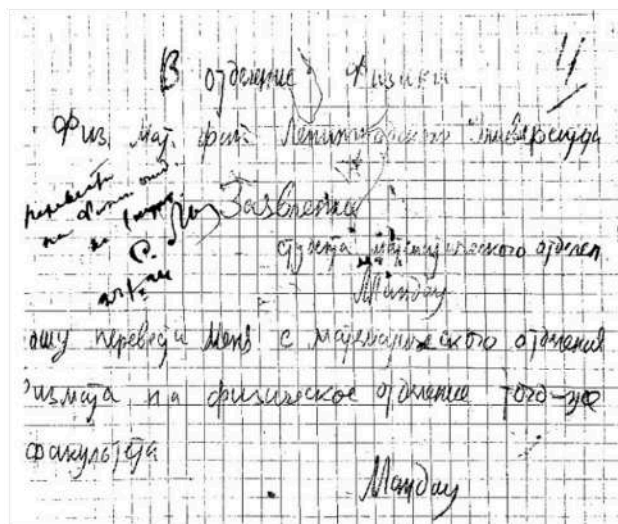 В отделение Физики
4
Физ. мат. фак. Ленинградского Университета
перевести
на физич. отд.
Заявление
студента математического отделен
Ландау
ошу перевести меня с математического отделения
измата на физическое отделение того-же
факультета
Ландау